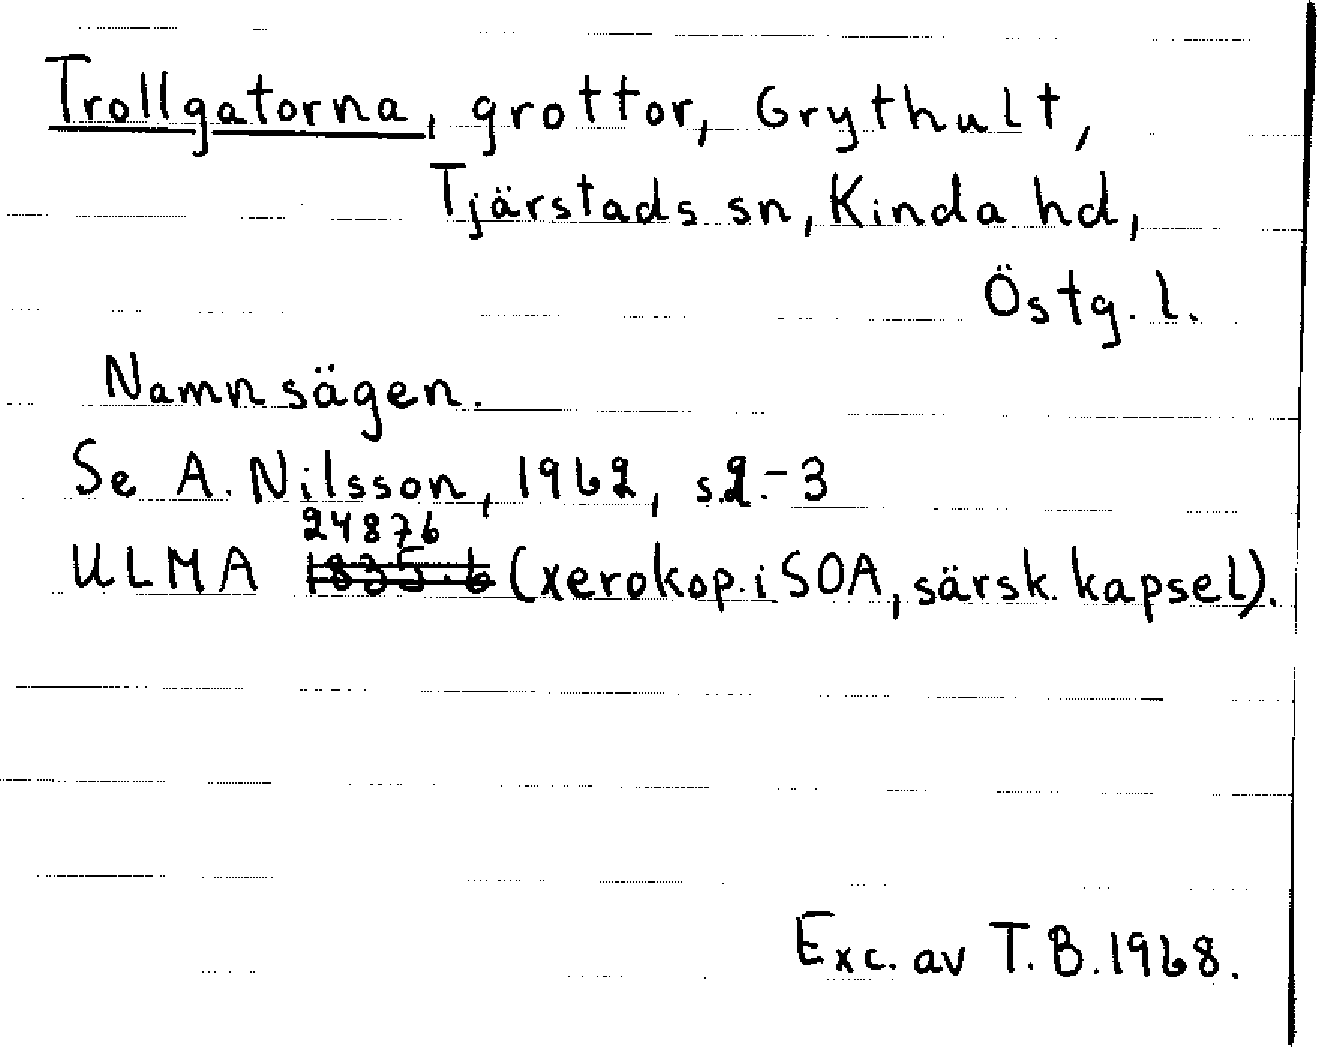 Trollgatorna, grottor, Grythult,
Tjärstads sn, Kinda hd,
Östg. l.
Namnsägen.
Se A. Nilsson, 1962, s.2-3
24876
ULMA 1835:6 (xerokop. i SOA, särsk. kapsel).
Exc. av T.B. 1968.